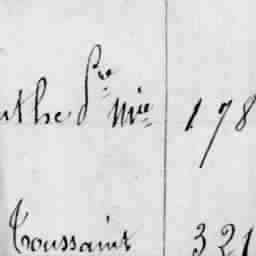 uthe Pre Mie 178
Toussaint 321